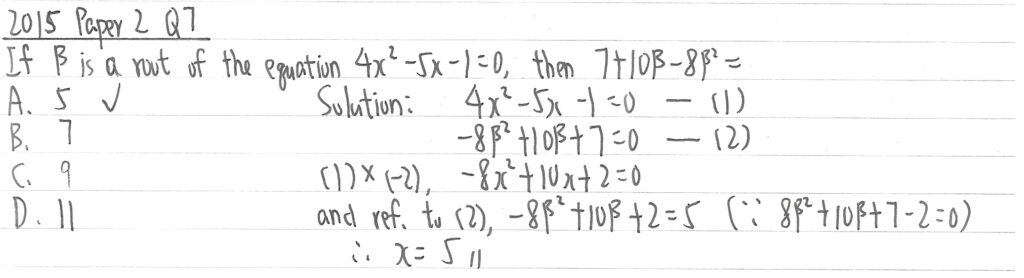 2015 Paper 2 Q7
If β is a root of the equation 4x²-5x-1=0, then 7+10β-8β²=
A. 5 ✓ Solution: 4x²-5x-1=0 — (1)
B. 7 -8β²+10β+7=0 — (2)
C. 9 (1)×(-2), -8x²+10x+2=0
D. 11 and ref. to (2), -8β²+10β+2=5 (∵ 8β²+10β+7-2=0)
∴ x=5 //